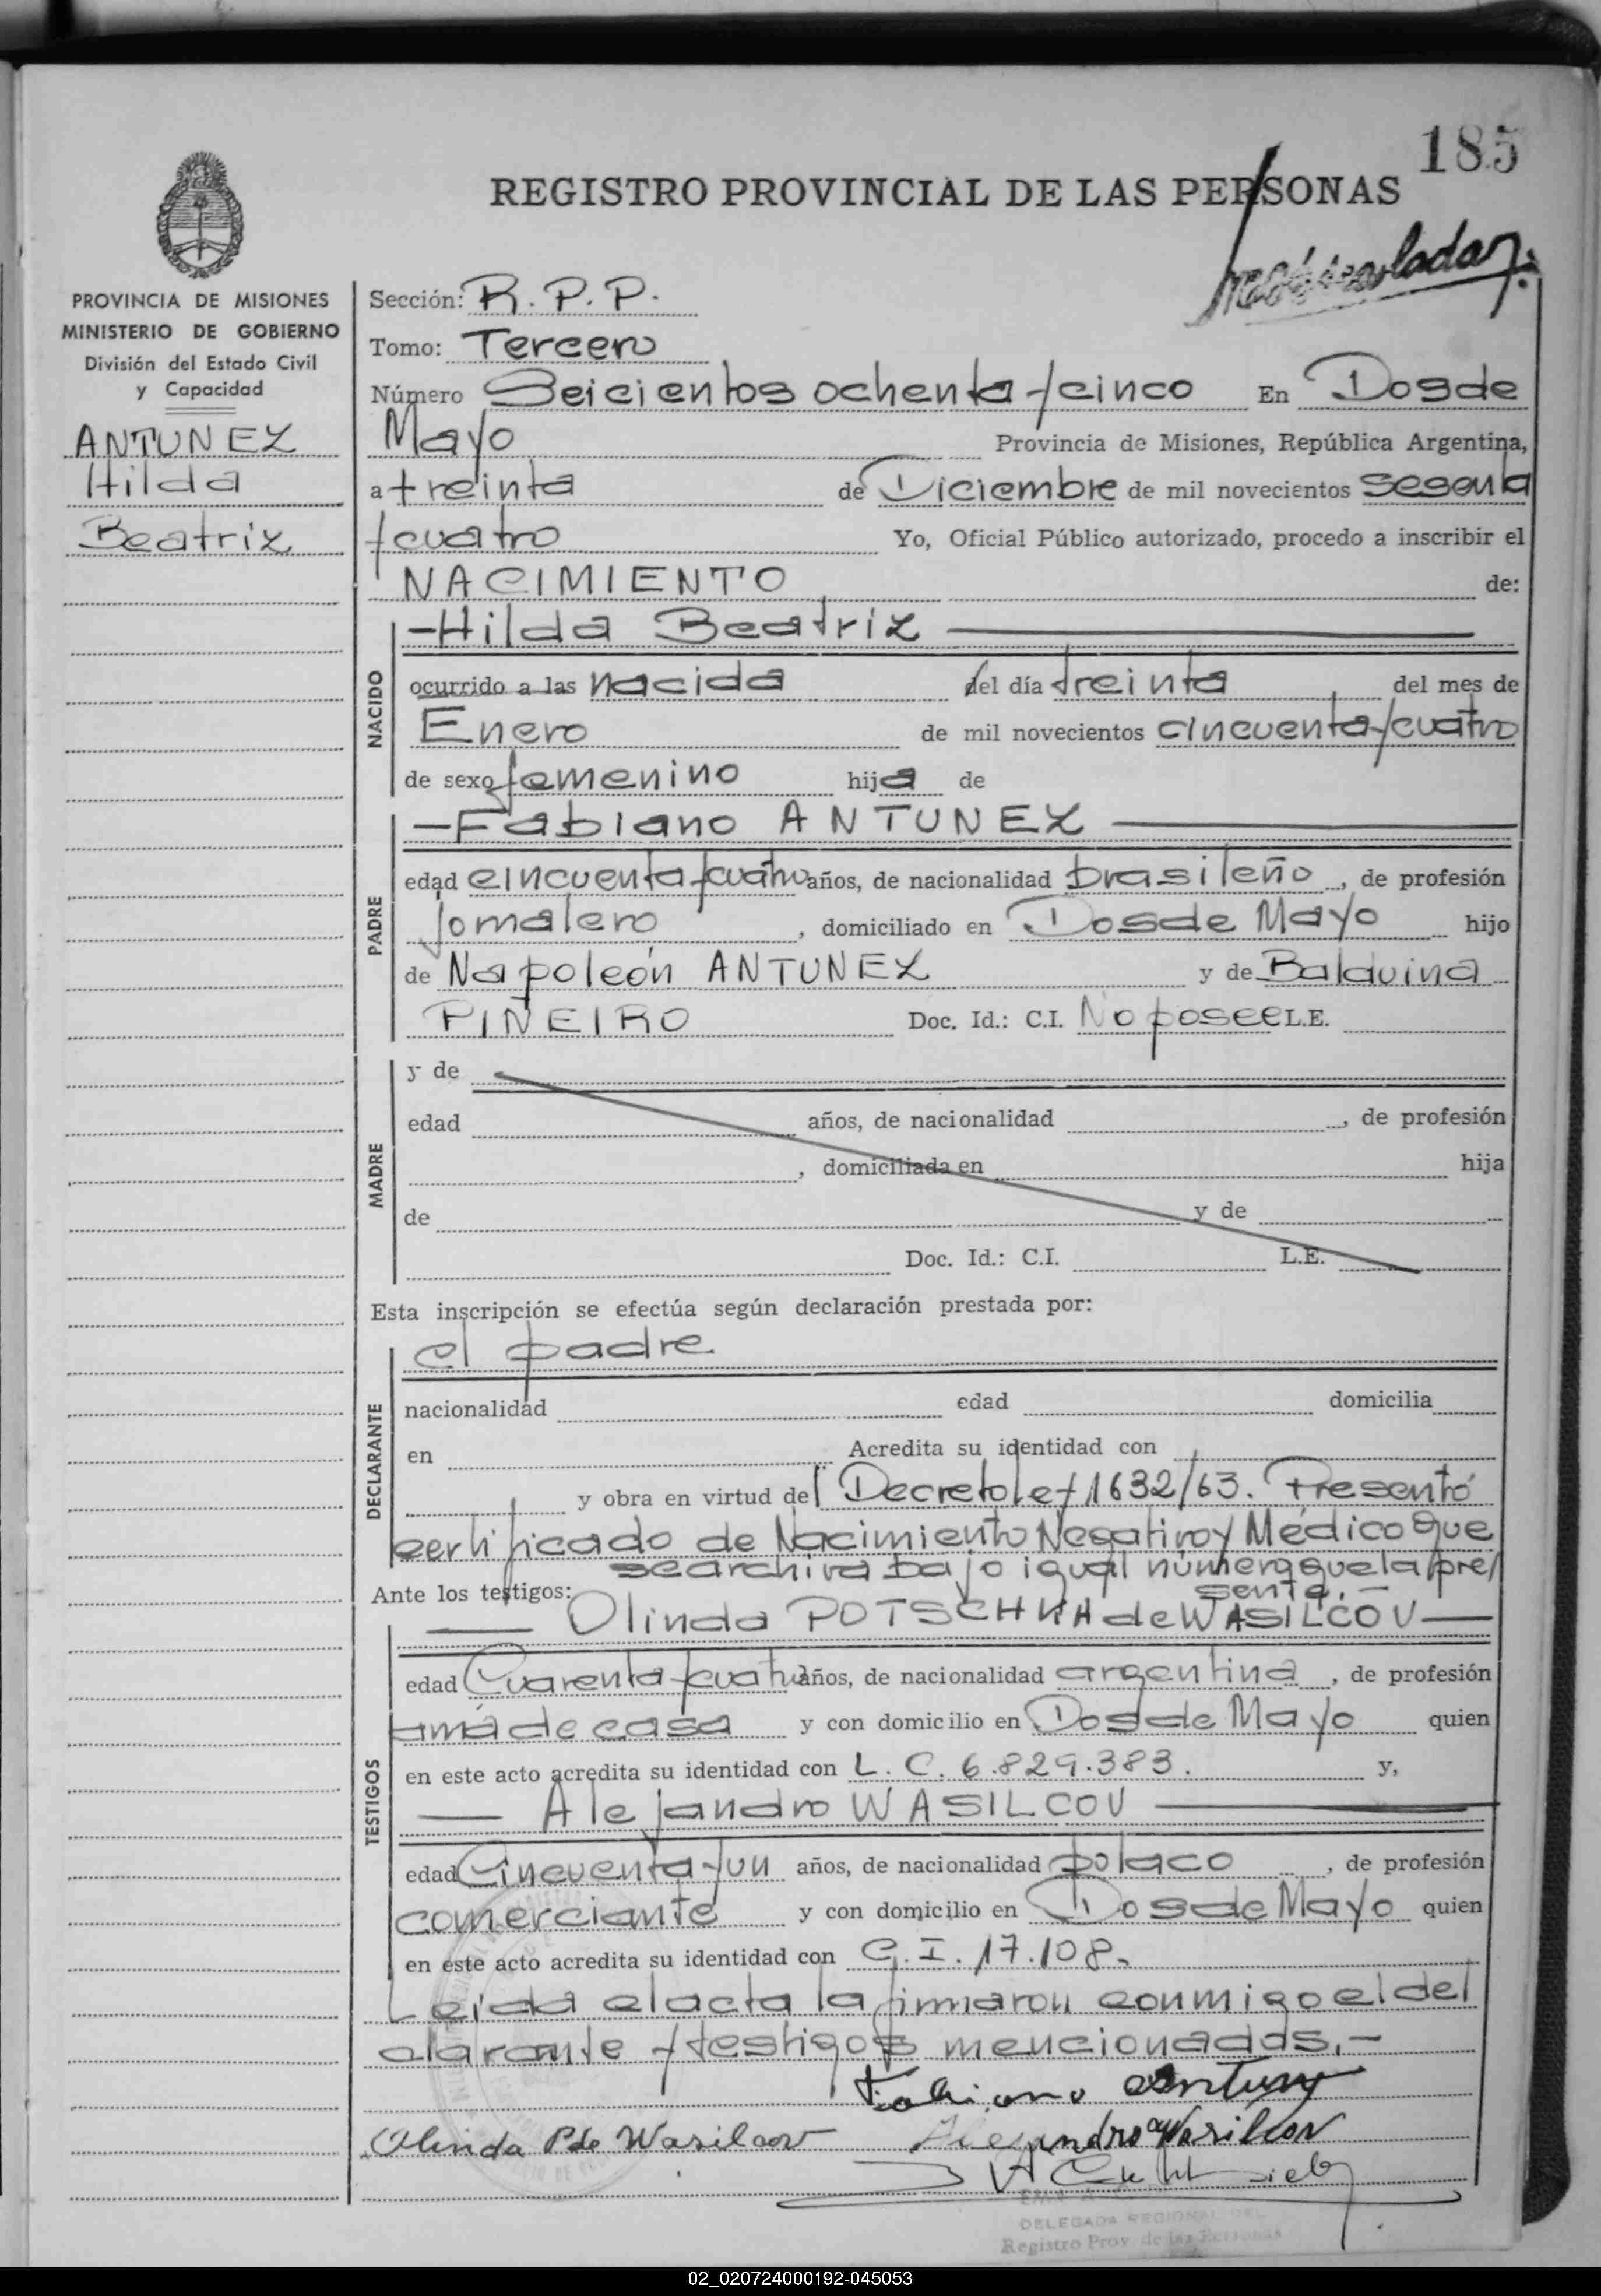 185
REGISTRO PROVINCIAL DE LAS PERSONAS
PROVINCIA DE MISIONES
MINISTERIO DE GOBIERNO
División del Estado Civil
y Capacidad
ANTUNEZ
Hilda
Beatriz
Sección: R.P.P.
Tomo: Tercero
Número Seicientos ochenta y cinco En Dos de
Mayo Provincia de Misiones, República Argentina,
a treinta de Diciembre de mil novecientos sesenta
y cuatro Yo, Oficial Público autorizado, procedo a inscribir el
NACIMIENTO de:
NACIDO
— Hilda Beatriz —
ocurrido a las nacida del día treinta del mes de
Enero de mil novecientos cincuenta y cuatro
de sexo femenino hija de
PADRE
— Fabiano ANTUNEZ —
edad cincuenta y cuatro años, de nacionalidad brasileño, de profesión
Jornalero, domiciliado en Dos de Mayo hijo
de Napoleón ANTUNEZ y de Balduina
PINEIRO Doc. Id.: C.I. No posee L.E.
MADRE
y de
edad años, de nacionalidad , de profesión
, domiciliada en hija
de y de
Doc. Id.: C.I. L.E.
Esta inscripción se efectúa según declaración prestada por:
DECLARANTE
el padre
nacionalidad edad domicilia
en Acredita su identidad con
y obra en virtud del Decreto ley 1632/63. Presentó
certificado de Nacimiento Negativo y Médico que
se archiva bajo igual número que la pre/
sente.—
Ante los testigos:
TESTIGOS
— Olinda POTSCHKA de WASILCOV —
edad Cuarenta y cuatro años, de nacionalidad argentina, de profesión
ama de casa y con domicilio en Dos de Mayo quien
en este acto acredita su identidad con L.C. 6.829.383. y,
— Alejandro WASILCOV —
edad Cincuenta y un años, de nacionalidad polaco, de profesión
comerciante y con domicilio en Dos de Mayo quien
en este acto acredita su identidad con C.I. 17.108.
Leida el acta la firmaron conmigo el de/
clarante y testigos mencionados.—
Fabiano Antunez
Olinda P. de Wasilcov Alejandro Wasilcov
DELEGADA REGIONAL DEL
Registro Prov. de las Personas
02_020724000192-045053